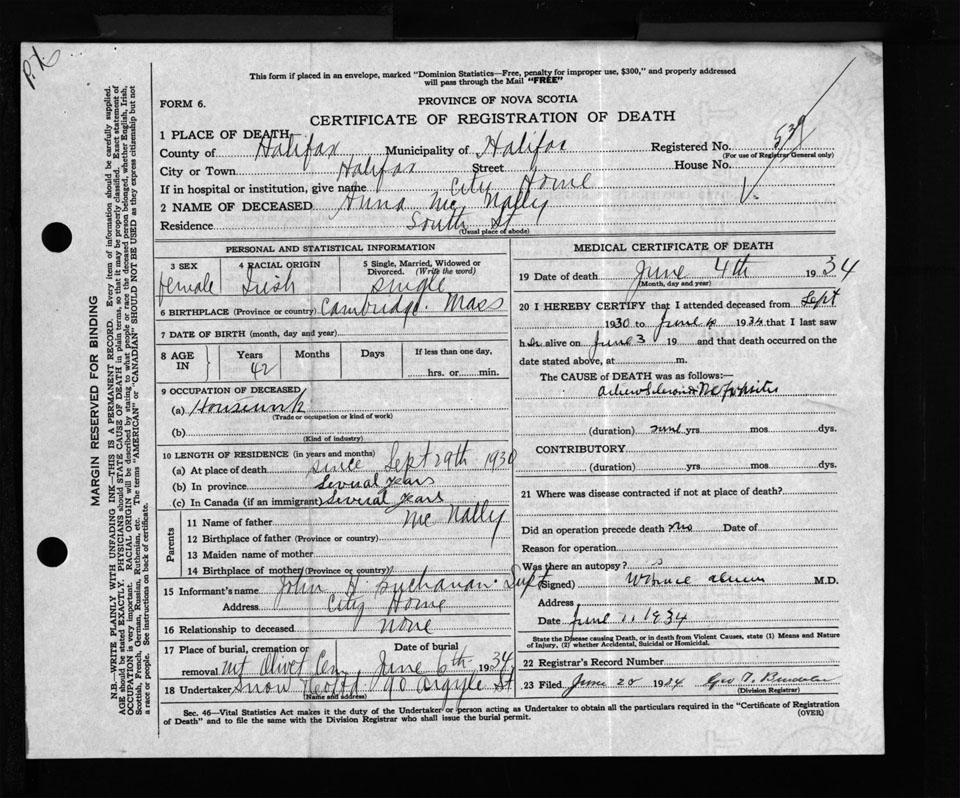 P.X.
This form if placed in an envelope, marked "Dominion Statistics—Free, penalty for improper use, $300," and properly addressed
will pass through the Mail "FREE"
FORM 6.
PROVINCE OF NOVA SCOTIA
CERTIFICATE OF REGISTRATION OF DEATH
1 PLACE OF DEATH—
County of Halifax Municipality of Halifax Registered No. 539
(For use of Registrar General only)
City or Town Halifax Street House No.
If in hospital or institution, give name City Home
2 NAME OF DECEASED Anna Mc Nally
Residence South St
(Usual place of abode)
PERSONAL AND STATISTICAL INFORMATION
3 SEX 4 RACIAL ORIGIN 5 Single, Married, Widowed or
Divorced. (Write the word)
female Irish single
6 BIRTHPLACE (Province or country) Cambridge. Mass
7 DATE OF BIRTH (month, day and year)
8 AGE IN Years Months Days If less than one day,
42 hrs. or min.
9 OCCUPATION OF DECEASED
(a) Housework
(Trade or occupation or kind of work)
(b)
(Kind of industry)
10 LENGTH OF RESIDENCE (in years and months)
(a) At place of death since Sept 29th 1930
(b) In province Several years
(c) In Canada (if an immigrant) Several years
Parents
11 Name of father Mc Nally
12 Birthplace of father (Province or country)
13 Maiden name of mother
14 Birthplace of mother (Province or country)
15 Informant's name John H. Buchanan. Supt
Address City Home
16 Relationship to deceased none
17 Place of burial, cremation or Date of burial
removal Mt Olivet Cem June 6th 1934
18 Undertaker Snow & Co Ltd 90 Argyle St
(Name and address)
MEDICAL CERTIFICATE OF DEATH
19 Date of death June 4th 1934
(Month, day and year)
20 I HEREBY CERTIFY that I attended deceased from Sept
1930 to June 4 1934 that I last saw
her alive on June 3 19 and that death occurred on the
date stated above, at m.
The CAUSE of DEATH was as follows:—
(duration) yrs mos dys.
CONTRIBUTORY
(duration) yrs mos dys.
21 Where was disease contracted if not at place of death?
Did an operation precede death? no Date of
Reason for operation
Was there an autopsy?
(Signed) M.D.
Address
Date June 11 1934
State the Disease causing Death, or in death from Violent Causes, state (1) Means and Nature
of Injury, (2) whether Accidental, Suicidal or Homicidal.
22 Registrar's Record Number
23 Filed June 20 1934
(Division Registrar)
Sec. 46—Vital Statistics Act makes it the duty of the Undertaker or person acting as Undertaker to obtain all the particulars required in the "Certificate of Registration
of Death" and to file the same with the Division Registrar who shall issue the burial permit. (OVER)
MARGIN RESERVED FOR BINDING
N.B.—WRITE PLAINLY WITH UNFADING INK—THIS IS A PERMANENT RECORD. Every item of information should be carefully supplied.
AGE should be stated EXACTLY. PHYSICIANS should STATE CAUSE OF DEATH in plain terms, so that it may be properly classified. Exact statement of
OCCUPATION is very important. RACIAL ORIGIN will be described by stating to what people or race the deceased person belonged, whether English, Irish,
Scottish, French, German, Russian, Ruthenian, etc. The terms "AMERICAN" or "CANADIAN" SHOULD NOT BE USED as they express citizenship but not
a race or people. See instructions on back of certificate.